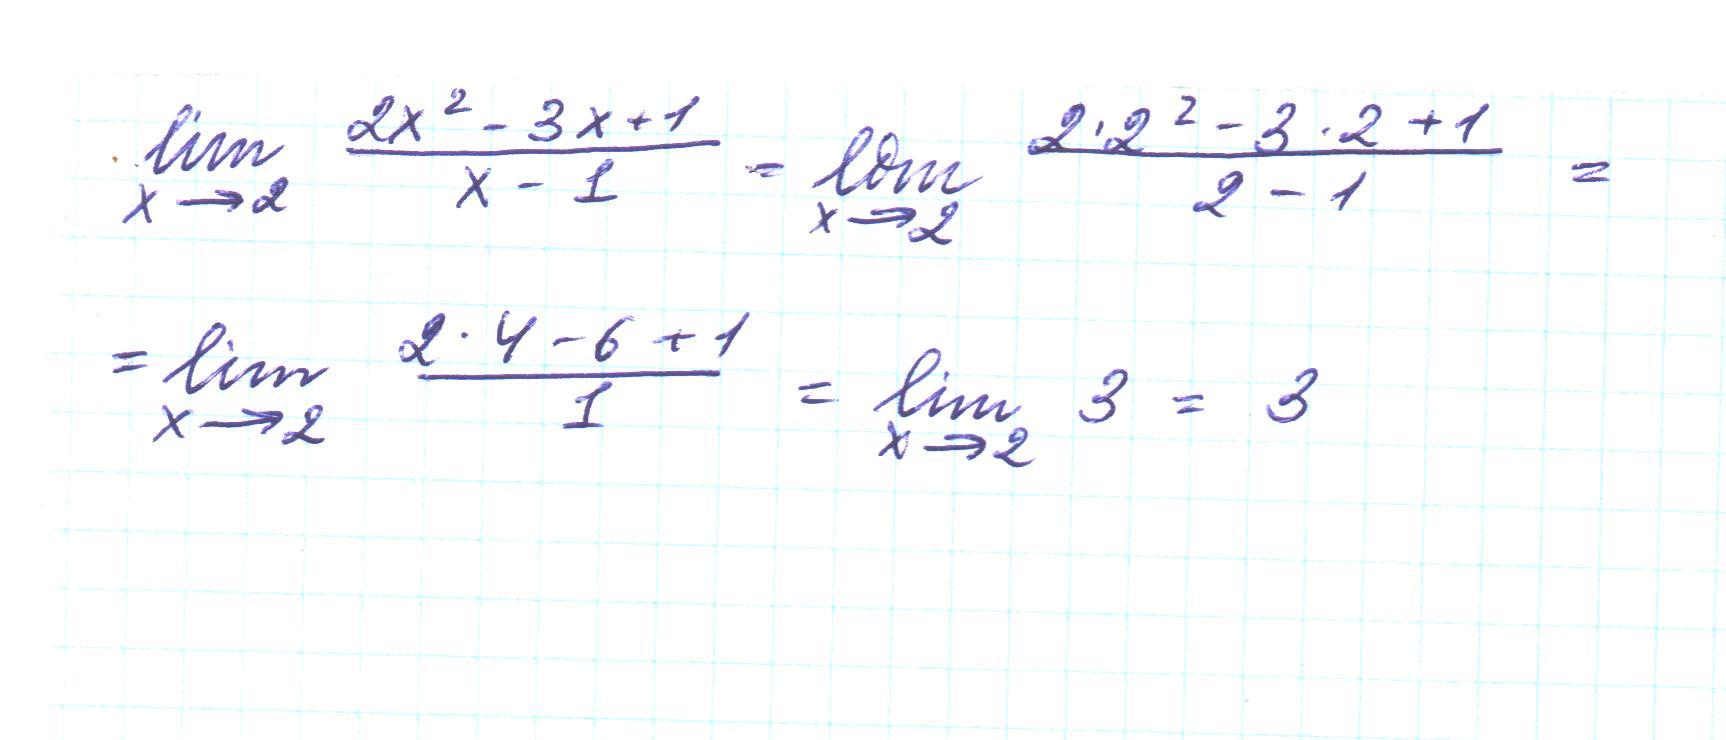 lim x→2 (2x² - 3x + 1)/(x - 1) = lim x→2 (2·2² - 3·2 + 1)/(2 - 1) =
= lim x→2 (2·4 - 6 + 1)/1 = lim x→2 3 = 3